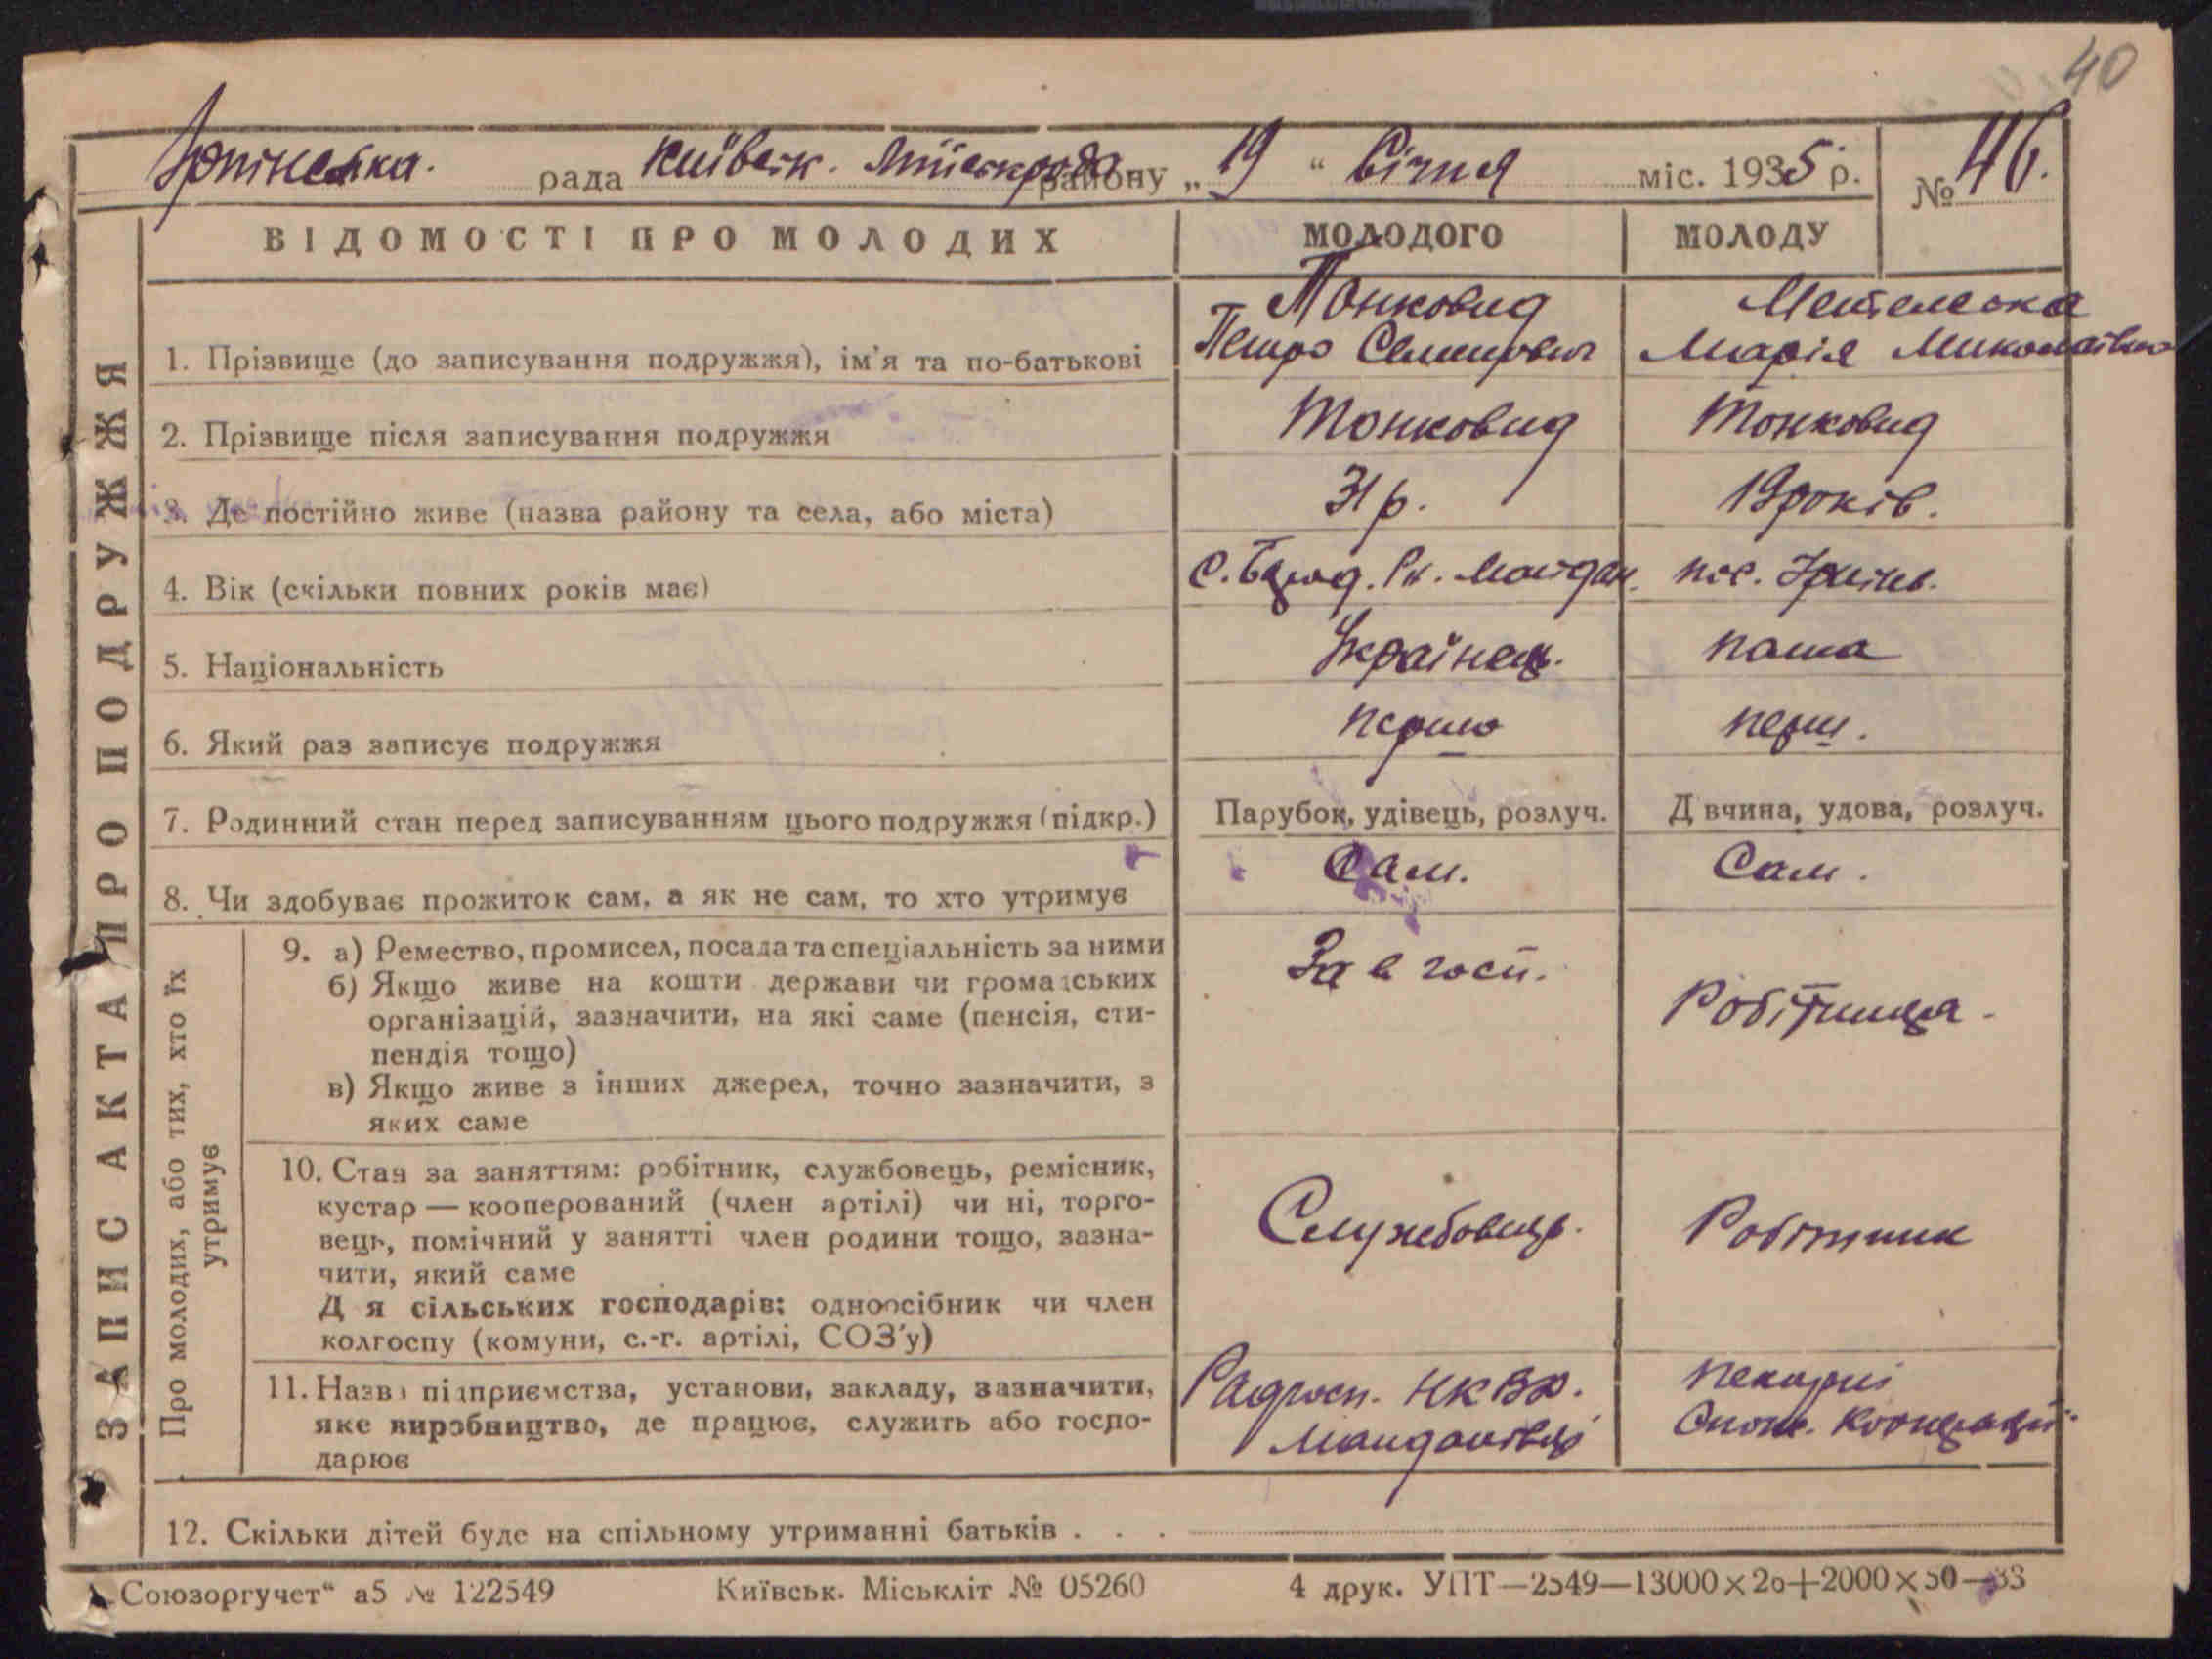 40
Ірпінська. рада Київськ. Міськради району „19“ Січня міс. 1935 р. № 46.
ВІДОМОСТІ ПРО МОЛОДИХ МОЛОДОГО МОЛОДУ
ЗАПИС АКТА ПРО ПОДРУЖЖЯ
Тонковид
Петро Семенович
Марія Миколаївна
1. Прізвище (до записування подружжя), ім'я та по-батькові
2. Прізвище після записування подружжя Тонковид Тонковид
3. Де постійно живе (назва району та села, або міста) 31 р. 19 років.
4. Вік (скільки повних років має) с. пос. Ірпінь.
5. Національність Українец. полька
6. Який раз записує подружжя перший перш.
7. Родинний стан перед записуванням цього подружжя (підкр.) Парубок, удівець, розлуч. Д вчина, удова, розлуч.
8. Чи здобуває прожиток сам, а як не сам, то хто утримує Сам. Сам.
Про молодих, або тих, хто їх
утримує
9. а) Ремество, промисел, посада та спеціальність за ними Зав госп.
б) Якщо живе на кошти держави чи громадських
організацій, зазначити, на які саме (пенсія, сти- Робітниця
пендія тощо)
в) Якщо живе з інших джерел, точно зазначити, з
яких саме
10. Стан за заняттям: робітник, службовець, ремісник,
кустар — кооперований (член артілі) чи ні, торго-
вець, помічний у занятті член родини тощо, зазна- Службовець. Робітник
чити, який саме
Д я сільських господарів: одноосібник чи член
колгоспу (комуни, с.-г. артілі, СОЗ'у)
11. Назва підприємства, установи, закладу, зазначити, Радгосп. НКВД. пекарні
яке виробництво, де працює, служить або госпо- Спож. Кооперації
дарює
12. Скільки дітей буде на спільному утриманні батьків . . .
„Союзоргучет“ а5 № 122549 Київськ. Міськліт № 05260 4 друк. УПТ—2549—13000×20+2000×50—33